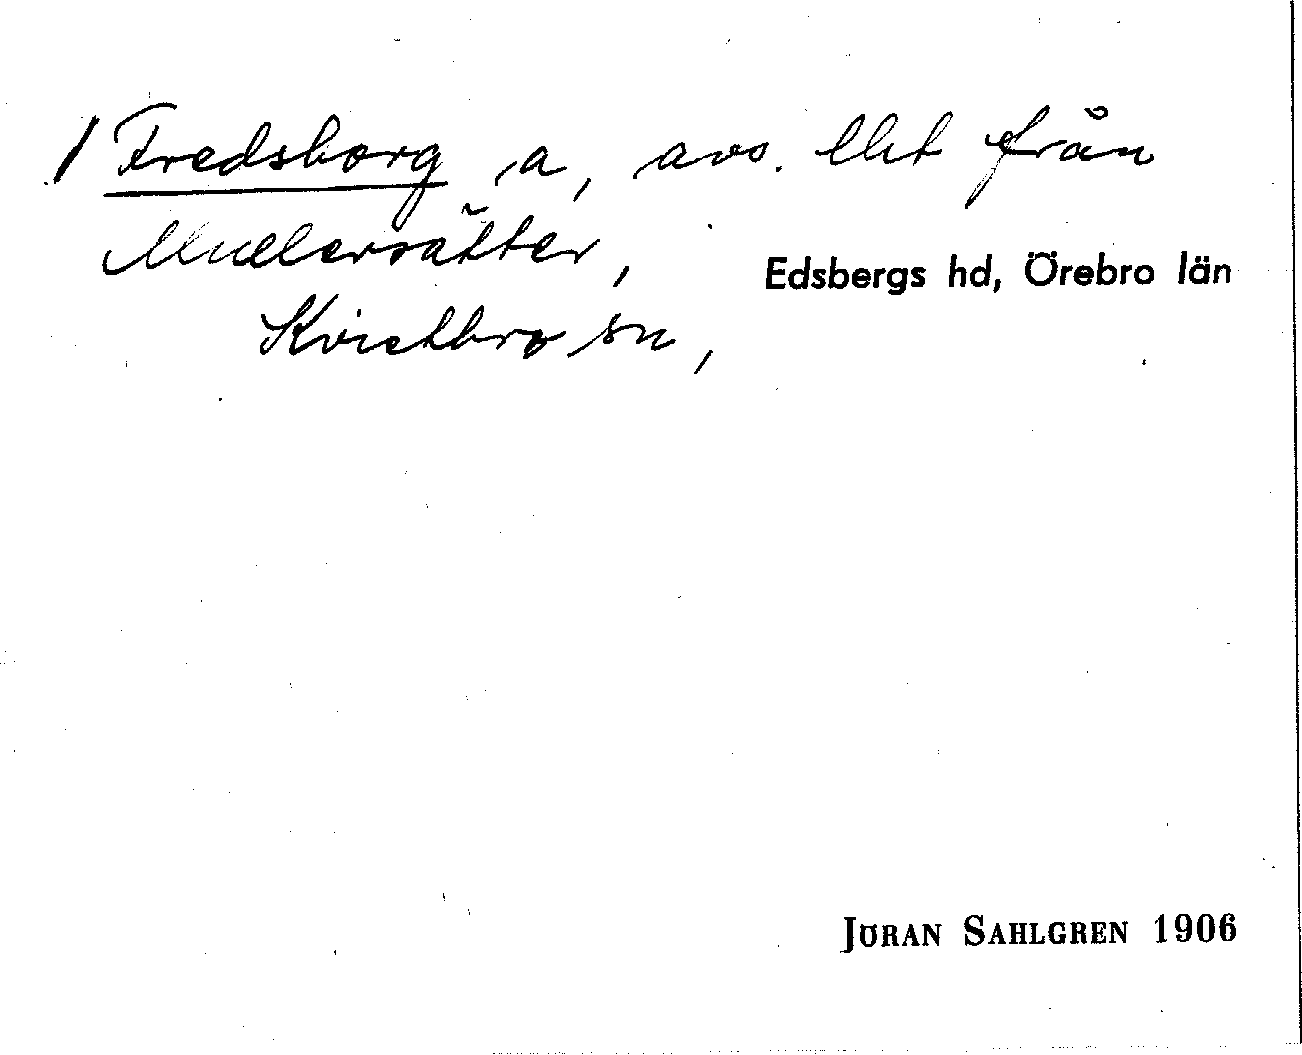 / Fredsborg, a, avs. lht från
Mullersätter,
Edsbergs hd, Örebro län
Kvistbro sn,
JÖRAN SAHLGREN 1906